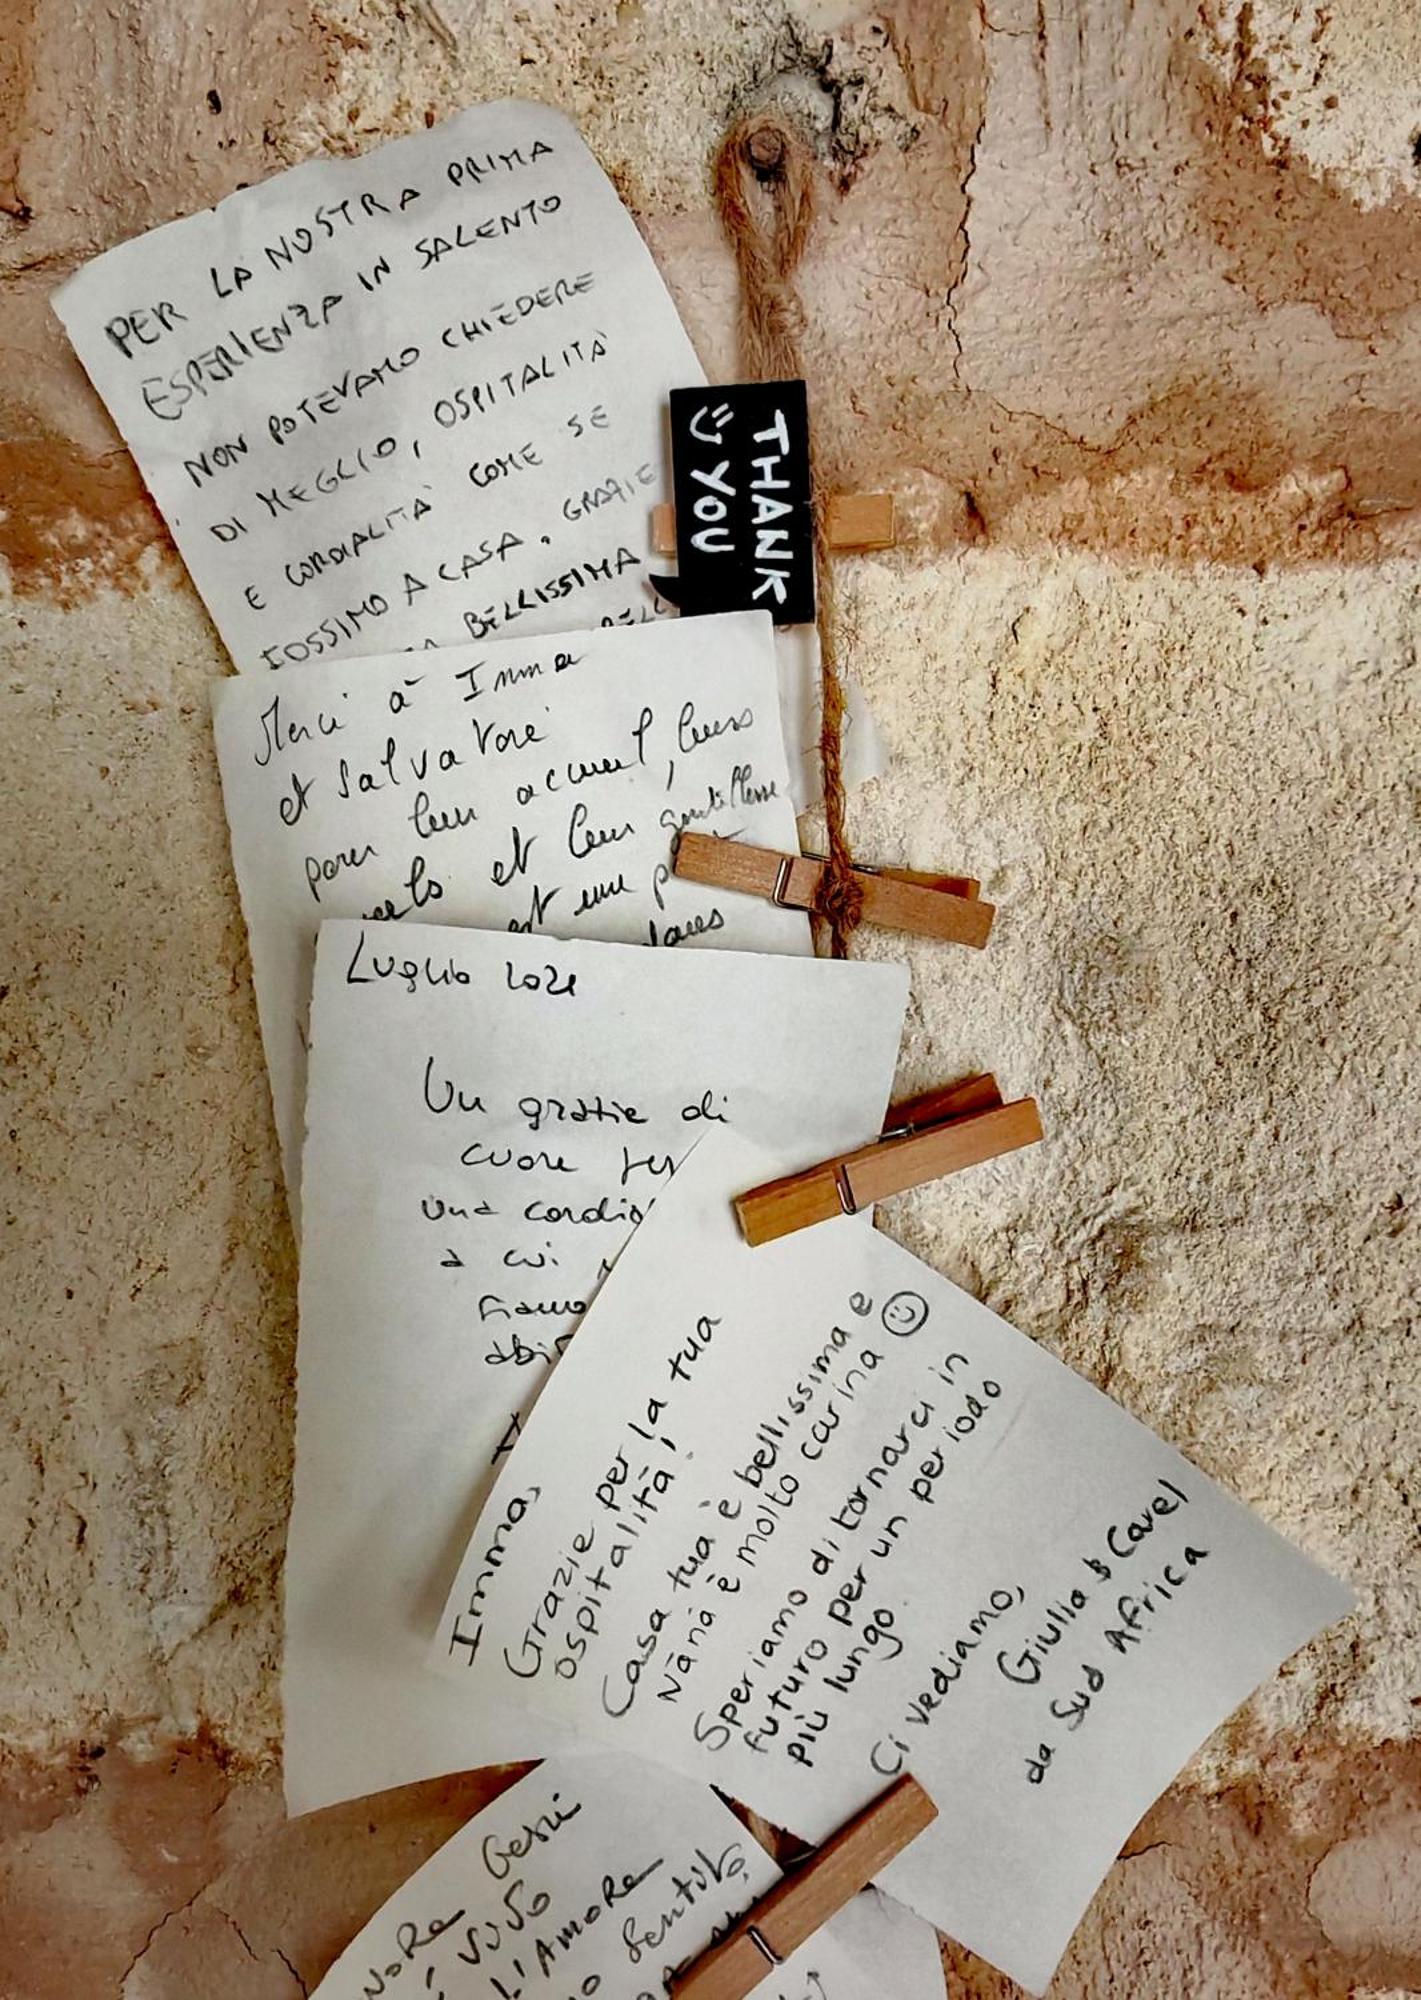 PER LA NOSTRA PRIMA
ESPERIENZA IN SALENTO
NON POTEVAMO CHIEDERE
DI MEGLIO, OSPITALITÀ
E CORDIALITÀ COME SE
FOSSIMO A CASA. GRAZIE
BELLISSIMA
THANK
YOU
Merci à Imma
et Salvatore
pour leur accueil, leurs
et leur gentillesse
est une
dans
Luglio 2021
Un grazie di
cuore per
una
a cui
siamo
Imma,
Grazie per la tua
ospitalità!
Casa tua è bellissima e
Nanà è molto carina
Speriamo di tornarci in
futuro per un periodo
più lungo.
Ci vediamo,
Giulia & Cavel
da Sud Africa
Gesù
VOSO
L'AMORE
Sentito